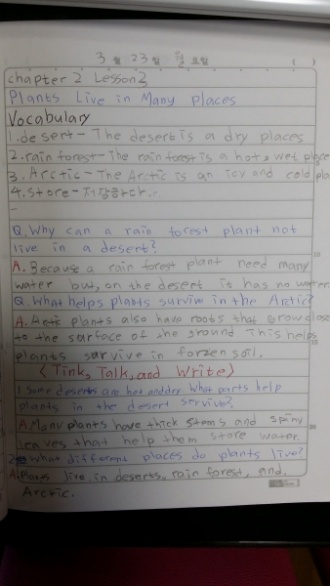 3 월 23 일 월 요일 ( )
chapter 2 Lesson 2
Plants Live in Many places
Vocabulary
1. desert - The desert is a dry places
2. rain forest - The rain forest is a hot & wet place
3. Arctic - The Arctic is an icy and cold pla
4. Store - 저장하다.
-
Q. Why can a rain forest plant not
live in a desert?
A. Because a rain forest plant need many
water but, on the desert is has no water
Q. What helps plants survive in the Arctic?
A. Arctic plants also have roots that grow close
to the surface of the ground This helps
plants survive in forzen soil.
<Tink, Talk, and Write>
1. Some deserts are hot and dry. What parts help
plants in the desert servive?
A. Many plants have thick stems and spiny
leaves that help them store water.
2. What different places do plants live?
A. Plants live in deserts, rain forest, and,
Arctic.